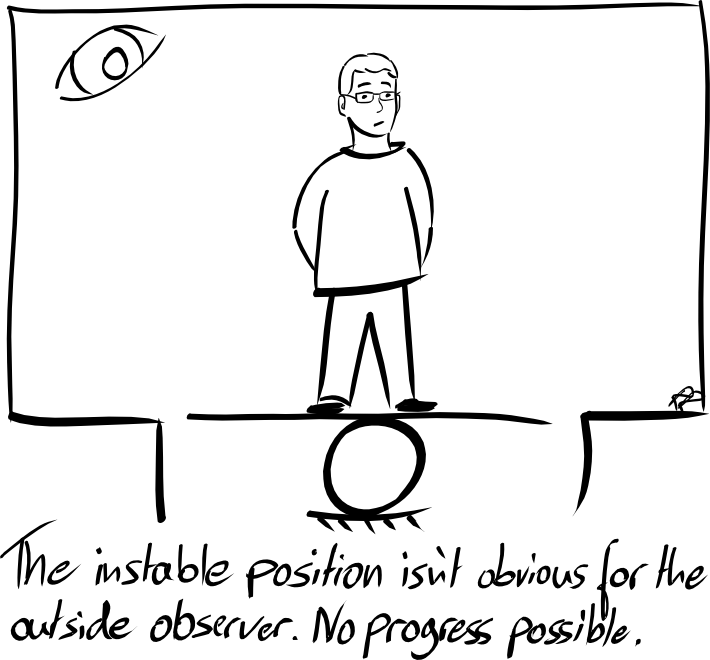 The instable position isn't obvious for the
outside observer. No progress possible.